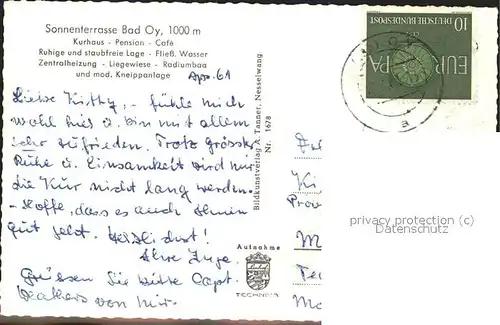 Sonnenterrasse Bad Oy, 1000 m
Kurhaus - Pension - Café
Ruhige und staubfreie Lage - Fließ. Wasser
Zentralheizung - Liegewiese - Radiumbad
und mod. Kneippanlage
Apr. 61
Liebe Kitty, - fühle mich
wohl hier u. bin mit allem
sehr zufrieden. Trotz grösster
Ruhe u. Einsamkeit wird mir
die Kur nicht lang werden.
- Hoffe, dass es auch Ihnen
gut geht. Herzlichst!
Ihre Inge.
Grüssen Sie bitte Capt.
von mir.
Bildkunstverlag A. Tanner, Nesselwang
Nr. 1678
Aufnahme
TECHNIK
10 DEUTSCHE BUNDESPOST
EUROPA
a
Prov
privacy protection (c)
Datenschutz